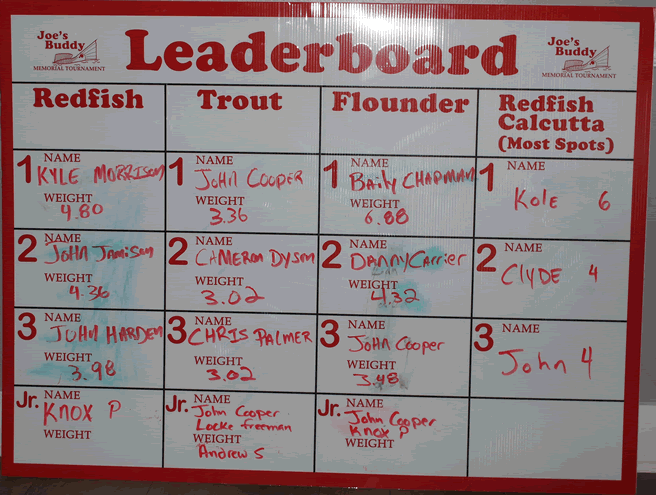 Joe's
Buddy
MEMORIAL TOURNAMENT
Leaderboard
Joe's
Buddy
MEMORIAL TOURNAMENT
Redfish
Trout
Flounder
Redfish
Calcutta
(Most Spots)
1 NAME
KYLE MORRISON
WEIGHT
4.80
1 NAME
JOHN COOPER
WEIGHT
3.36
1 NAME
BAily CHAPMAN
WEIGHT
6.88
1 NAME
Kole 6
2 NAME
John Jamison
WEIGHT
4.36
2 NAME
CAMERON DYSON
WEIGHT
3.02
2 NAME
DANNY Carrier
WEIGHT
4.32
2 NAME
Clyde 4
3 NAME
JOHN HARDEN
WEIGHT
3.98
3 NAME
CHRIS PALMER
WEIGHT
3.02
3 NAME
John Cooper
WEIGHT
3.48
3 NAME
John 4
Jr. NAME
KNOX P
WEIGHT
Jr. NAME
John Cooper
Locke freeman
WEIGHT
Andrew S
Jr. NAME
John Cooper
Knox P
WEIGHT